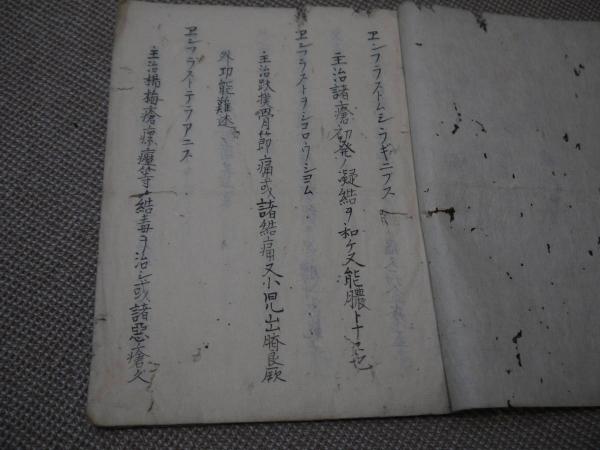 ヱンフラストムシラギニフス
主治諸瘡初発ノ凝結ヲ和ケ又能膿トナス也
ヱンフラストヲシコロウシヨム
主治跌撲骨節痛或諸結痛又小児出臍良厥
外功能難述
ヱンフラストテラアニス
主治楊梅瘡瘰癧等ノ結毒ヲ治シ或諸悪瘡久